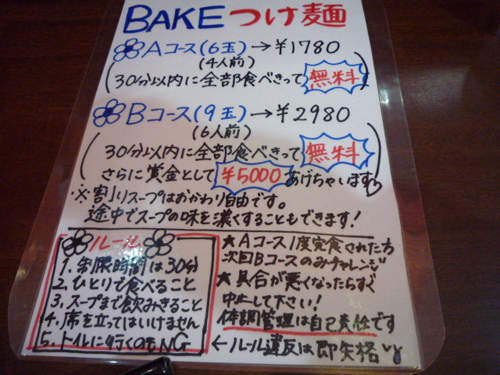 BAKEつけ麺
Aコース(6玉)→¥1780
(4人前)
(30分以内に全部食べきって無料)
Bコース(9玉)→¥2980
(6人前)
(30分以内に全部食べきって無料
さらに賞金として¥5000あげちゃいます)
※割りスープはおかわり自由です。
途中でスープの味を濃くすることもできます!
ルール
1.制限時間は30分
2.ひとりで食べること
3.スープまで飲みきること
4.席を立ってはいけません
5.トイレに行くのもNG
★Aコース1度完食された方
次回Bコースのみチャレンジ
★具合が悪くなったらすぐ
中止して下さい!
体調管理は自己責任です
←ルール違反は即失格